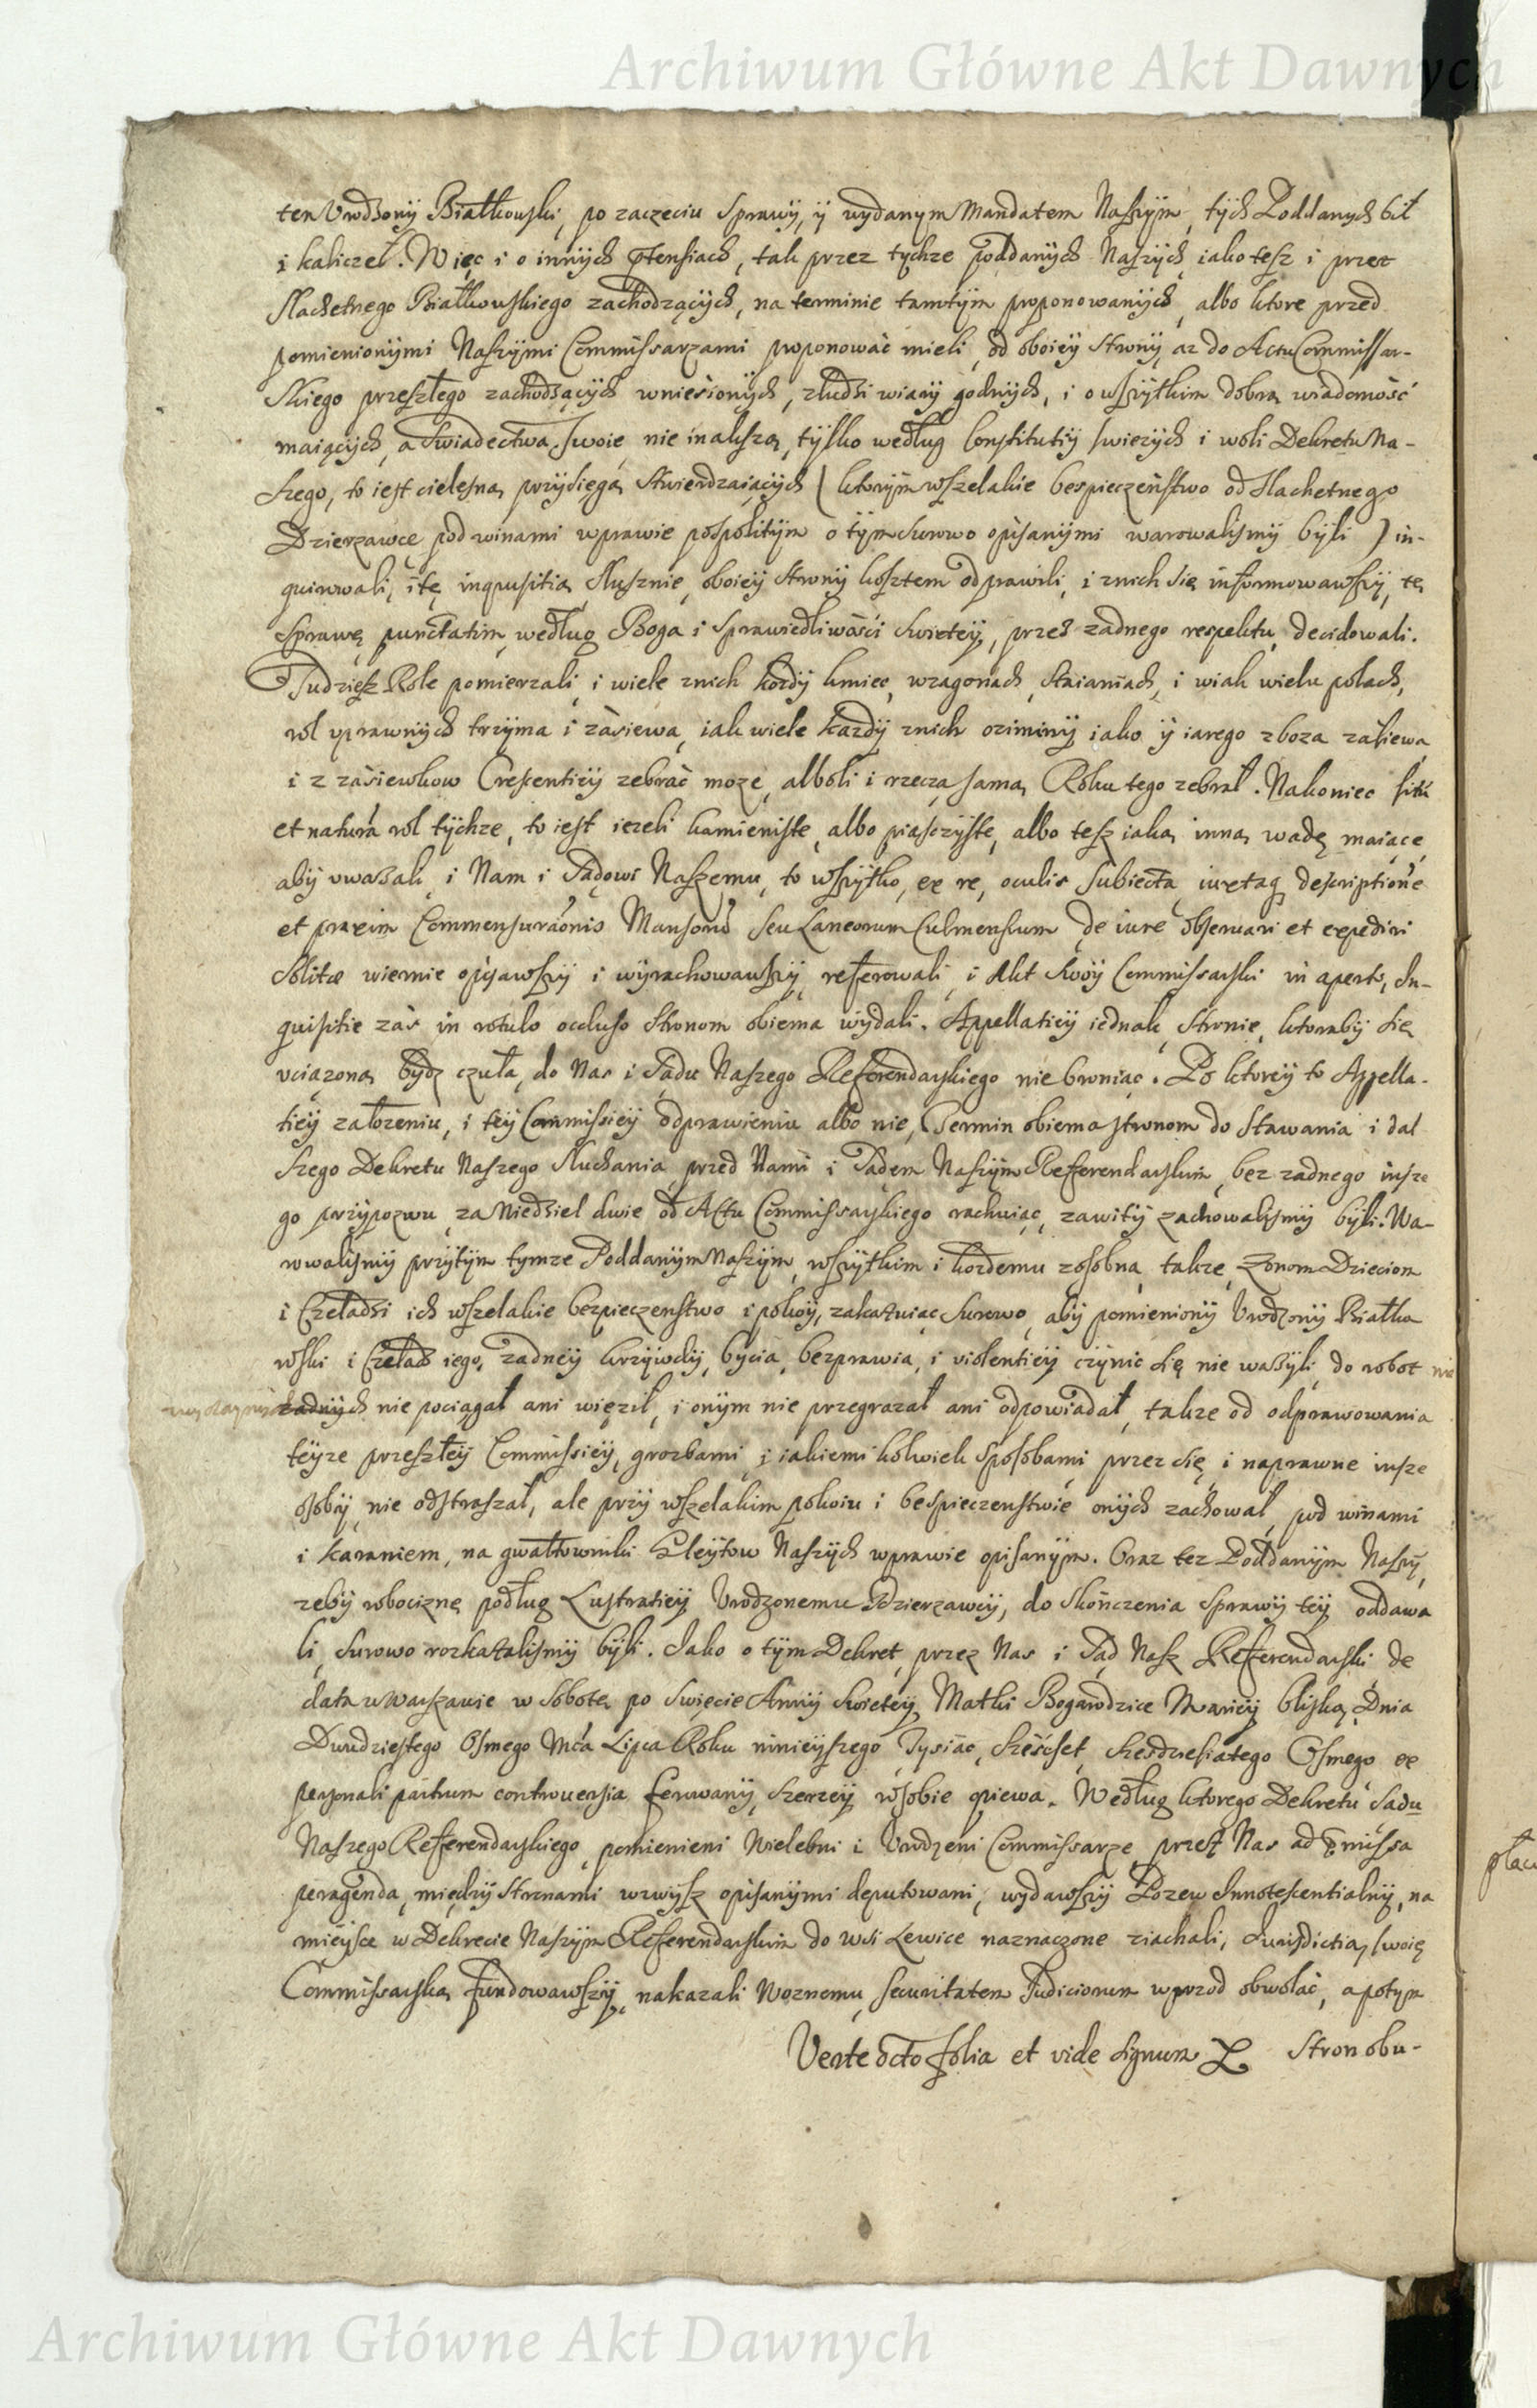 Archiwum Główne Akt Dawnych
ten Vrodzony Białkowski, po zaczeciu Sprawy, y wydanym Mandatem Naszym, tych Poddanych bił
i kaliczeł. Więc i o innych ptensiach, tak przez tychze poddanych Naszych iako tesz i przez
Slachetnego Białkowskiego zachodzących, na terminie tamtym proponowanych, albo ktore przed
pomienionymi Naszymi Commissarzami proponować mieli, od oboiey Strony az do Actu Commissar-
skiego przeszłego zachodzących wniesionych, z ludzi wiary godnych, i o wszytkim dobrą wiadomość
maiących, a Swiadectwa swoie nie inaksza, tylko według Constitutiy swiezych i woli Dekretu Na-
szego, to iest cielesną przysięgą stwierdzaiących ( ktorym wszelakie bespieczeństwo od Slachetnego
Dzierzawce pod winami w prawie pospolitym o tym surowo opisanymi warowalismy byli ) in-
quirowali, i tę inquisitią słusznie, oboiey Strony kosztem odprawili, i z nich się informowawszy, tę
Sprawę punctatim, według Boga i Sprawiedliwości Swietey, przes zadnego respektu, decidowali.
Tudziesz Role pomierzali, i wiele z nich kozdy kmiec, w zagonach, Staianiach, i w iak wielu polach,
rol uprawnych trzyma i zasiewa, iak wiele kazdy z nich oziminy iako y iarego zboza zasiewa
i z zasiewkow Crescentiiy zebrać moze, alboli i rzeczą samą Roku tego zebrał. Nakoniec situ
et natura rol tychze, to iest iezeli kamieniste, albo piasczyste, albo tesz iaką inną wadę maiące
aby uwazali, i Nam i Sądowi Naszemu, to wszytko, ex re, oculis subiecta, iuxtaq descriptione
et praxim Commensuraonis Mansoru seu Laneorum Culmensium de iure observari et expediri
Solitæ wiernie opisawszy i wyrachowawszy, referowali, i Akt swoy Commissarski in aperto, In-
quisitie zas in rotulo occluso Stronom obiema wydali. Appellatiey iednak, Stronie, ktoraby się
uciązoną bydz czuła, do Nas i Sądu Naszego Referendarskiego nie broniąc. Po ktorey to Appella-
tiey załozeniu, i tey Commissiey odprawieniu albo nie, Termin obiema stronom do Stawania i dal
szego Dekretu Naszego słuchania, przed Nami i Sądem Naszym Refferendarskim, bez zadnego insze
go przypozwu, za Niedziel dwie od Actu Commissarskiego rachuiąc, zawity zachowalismy byli. Wa-
rowalismy przytym tymze Poddanym Naszym, wszytkim i kozdemu zosobna, takze, Zonom Dzieciom
i Czeladzi ich wszelakie bezpieczenstwo i pokoy, zakazuiąc surowo, aby pomieniony Urodzony Białko
wski i Czeladz iego, zadney krzywdy, bycia, bezprawia, i violentiey czynic się nie wazyli, do robot nie
zadnych nie pociągał ani więził, i onym nie przegrazał ani odpowiadał, takze od odprawowania
teyze przeszłey Commissiey, grozbami, i iakiemi kolwiek sposobami przez się, i naprawne insze
osoby, nie odstraszał, ale przy wszelakim pokoiu i bespieczenstwie onych zachował, pod winami
i karaniem, na gwałtowniki Gleytow Naszych w prawie opisanym. Oraz tez Poddanym Naszy,
zeby robociznę podług Lustratiey Urodzonemu Dzierzawcy, do skończenia sprawy tey oddawa
li, surowo rozkazalismy byli. Jako o tym Dekret, przez Nas i Sąd Nasz Refferendarski de
data w Warszawie w Sobotę po Swięcie Anny Swietey, Matki Bogarodzice Mariey bliską, Dnia
Dwudziestego Osmego Mca Lipca Roku ninieyszego Tysiąc, szescset, szesdziesiatego Osmego ex
personali partium controuersia ferowany, szerzey w sobie opiewa. Według ktorego Dekretu Sadu
Naszego Refferendarskiego, pomienieni Wielebni i Urodzeni Commissarze, przesz Nas ad pmissa
peragenda, między stronami wzwysz opisanymi deputowani, wydawszy Pozew Innotescentialny, na
mieysce w Dekrecie Naszym Refferendarskim do wsi Lewice naznaczone ziachali, Iurisdictią swoię
Commissarską fundowawszy, nakazali Woznemu, securitatem Iudiciorum wprzod obwołać, a potym
Verte octo folia et vide signum Stron obu-
Archiwum Główne Akt Dawnych